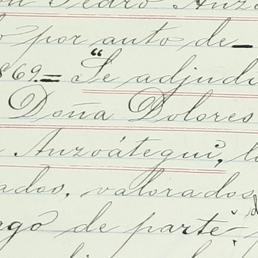 Pedro Anzo
por auto de
1869 = "Se adjudi
Doña Dolores
Anzoátegui, l
ados, valorados
agó de parte